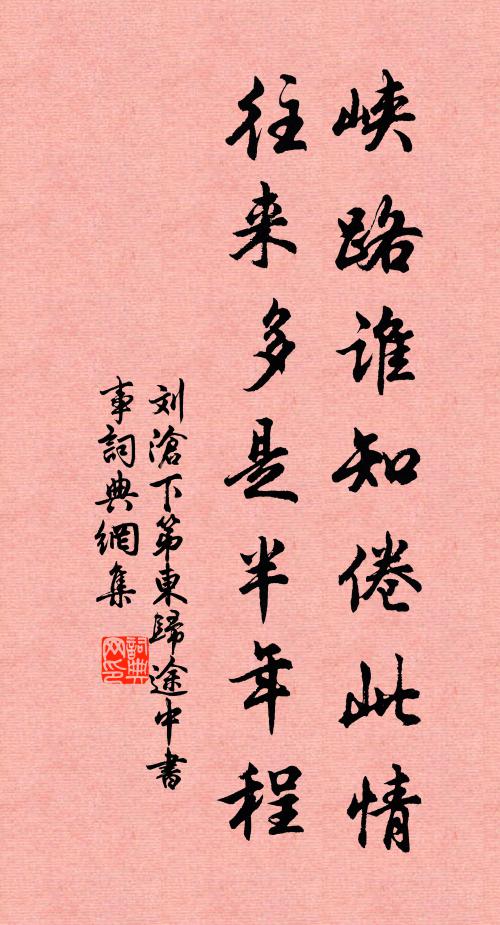 峡路谁知倦此情
往来多是半年程
刘滄下第東歸途中書
事詞典網集
詞典
网印